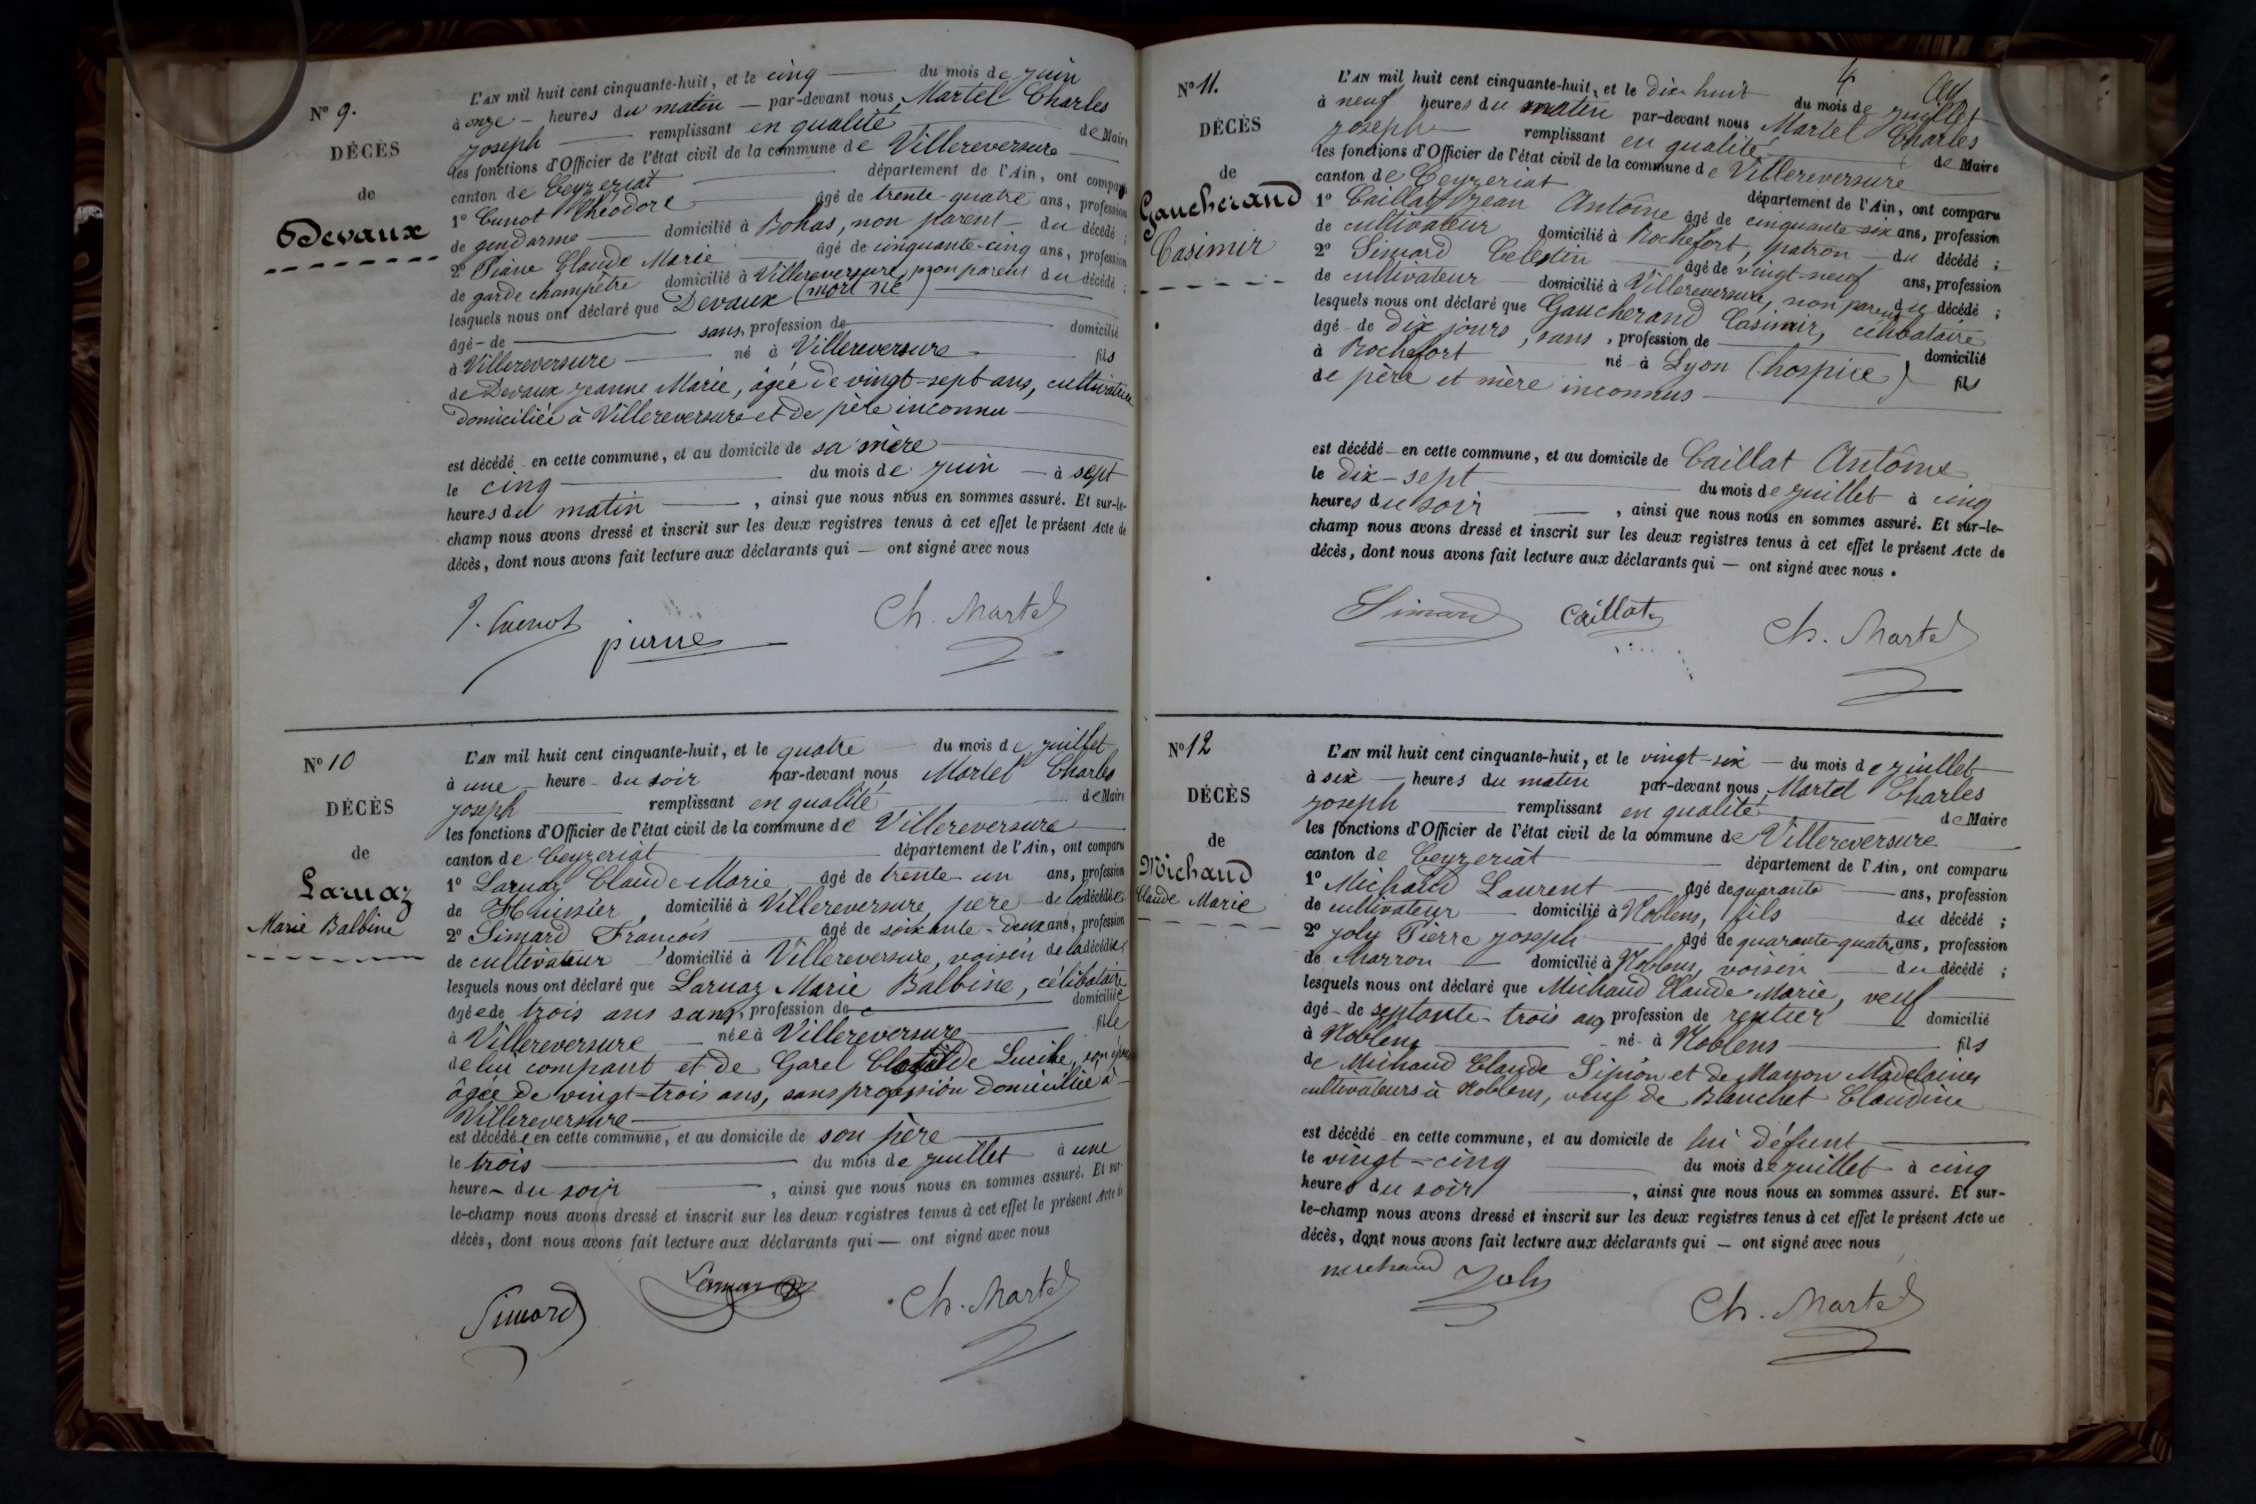 Nº 9.
DÉCÈS
de
Devaux
L'AN mil huit cent cinquante-huit, et le cinq du mois de juin
à onze heures du matin par-devant nous Martel Charles
Joseph remplissant en qualité de Maire
les fonctions d'Officier de l'état civil de la commune de Villereversure
canton de Ceyzeriat département de l'Ain, ont comparu
1º Cunot Théodore âgé de trente-quatre ans, profession
de gendarme domicilié à Bohas, non parent du décédé ;
2º Piane Claude Marie âgé de cinquante-cinq ans, profession
de garde champêtre domicilié à Villereversure, non parent du décédé ;
lesquels nous ont déclaré que Devaux (mort né)
âgé de sans, profession de domicilié
à Villereversure né à Villereversure fils
de Devaux Jeanne Marie, âgée de vingt-sept ans, cultivatrice
domiciliée à Villereversure et de père inconnu
est décédé en cette commune, et au domicile de sa mère
le cinq du mois de juin à sept
heures du matin , ainsi que nous nous en sommes assuré. Et sur-le-
champ nous avons dressé et inscrit sur les deux registres tenus à cet effet le présent Acte de
décès, dont nous avons fait lecture aux déclarants qui — ont signé avec nous
Ch. Martel
Nº 10
DÉCÈS
de
Laruaz
Marie Balbine
L'AN mil huit cent cinquante-huit, et le quatre du mois de juillet
à une heure du soir par-devant nous Martel Charles
Joseph remplissant en qualité de Maire
les fonctions d'Officier de l'état civil de la commune de Villereversure
canton de Ceyzeriat département de l'Ain, ont comparu
1º Laruaz Claude Marie âgé de trente-un ans, profession
de Huissier, domicilié à Villereversure, père de la décédée
2º Simard François âgé de soixante-deux ans, profession
de cultivateur domicilié à Villereversure, voisin de la décédée
lesquels nous ont déclaré que Laruaz Marie Balbine, célibataire
âgée de trois ans sans, profession de domiciliée
à Villereversure née à Villereversure fille
de lui compant et de Garel Clotilde Lucile, son épouse
âgée de vingt-trois ans, sans profession domiciliée à
Villereversure
est décédée en cette commune, et au domicile de son père
le trois du mois de juillet à une
heure du soir , ainsi que nous nous en sommes assuré. Et sur-
le-champ nous avons dressé et inscrit sur les deux registres tenus à cet effet le présent Acte de
décès, dont nous avons fait lecture aux déclarants qui — ont signé avec nous
Simard Laruaz Ch. Martel
4
Nº 11.
DÉCÈS
de
Gaucherand
Casimir
L'AN mil huit cent cinquante-huit, et le dix-huit du mois de juillet
à neuf heures du matin par-devant nous Martel Charles
Joseph remplissant en qualité de Maire
les fonctions d'Officier de l'état civil de la commune de Villereversure
canton de Ceyzeriat département de l'Ain, ont comparu
1º Caillat Jean Antoine âgé de cinquante-six ans, profession
de cultivateur domicilié à Rochefort, patron du décédé ;
2º Simard Celestin âgé de vingt-neuf ans, profession
de cultivateur domicilié à Villereversure, non parent du décédé ;
lesquels nous ont déclaré que Gaucherand Casimir, célibataire
âgé de dix jours, sans, profession de domicilié
à Rochefort né à Lyon (hospice) fils
de père et mère inconnus
est décédé en cette commune, et au domicile de Caillat Antoine
le dix-sept du mois de juillet à cinq
heures du soir , ainsi que nous nous en sommes assuré. Et sur-le-
champ nous avons dressé et inscrit sur les deux registres tenus à cet effet le présent Acte de
décès, dont nous avons fait lecture aux déclarants qui — ont signé avec nous.
Simard Caillat Ch. Martel
Nº 12
DÉCÈS
de
Michaud
Claude Marie
L'AN mil huit cent cinquante-huit, et le vingt-six du mois de juillet
à six heures du matin par-devant nous Martel Charles
Joseph remplissant en qualité de Maire
les fonctions d'Officier de l'état civil de la commune de Villereversure
canton de Ceyzeriat département de l'Ain, ont comparu
1º Michaud Laurent âgé de quarante ans, profession
de cultivateur domicilié à Noblens, fils du décédé ;
2º Joly Pierre Joseph âgé de quarante-quatre ans, profession
de Marron domicilié à Noblens, voisin du décédé ;
lesquels nous ont déclaré que Michaud Claude Marie, veuf
âgé de septante-trois ans profession de rentier domicilié
à Noblens né à Noblens fils
de Michaud Claude Sipion et de Mayon Madelaine
cultivateurs à Noblens, veuf de Blanchet Claudine
est décédé en cette commune, et au domicile de lui défunt
le vingt-cinq du mois de juillet à cinq
heures du soir , ainsi que nous nous en sommes assuré. Et sur-
le-champ nous avons dressé et inscrit sur les deux registres tenus à cet effet le présent Acte de
décès, dont nous avons fait lecture aux déclarants qui — ont signé avec nous
michaud Joly Ch. Martel